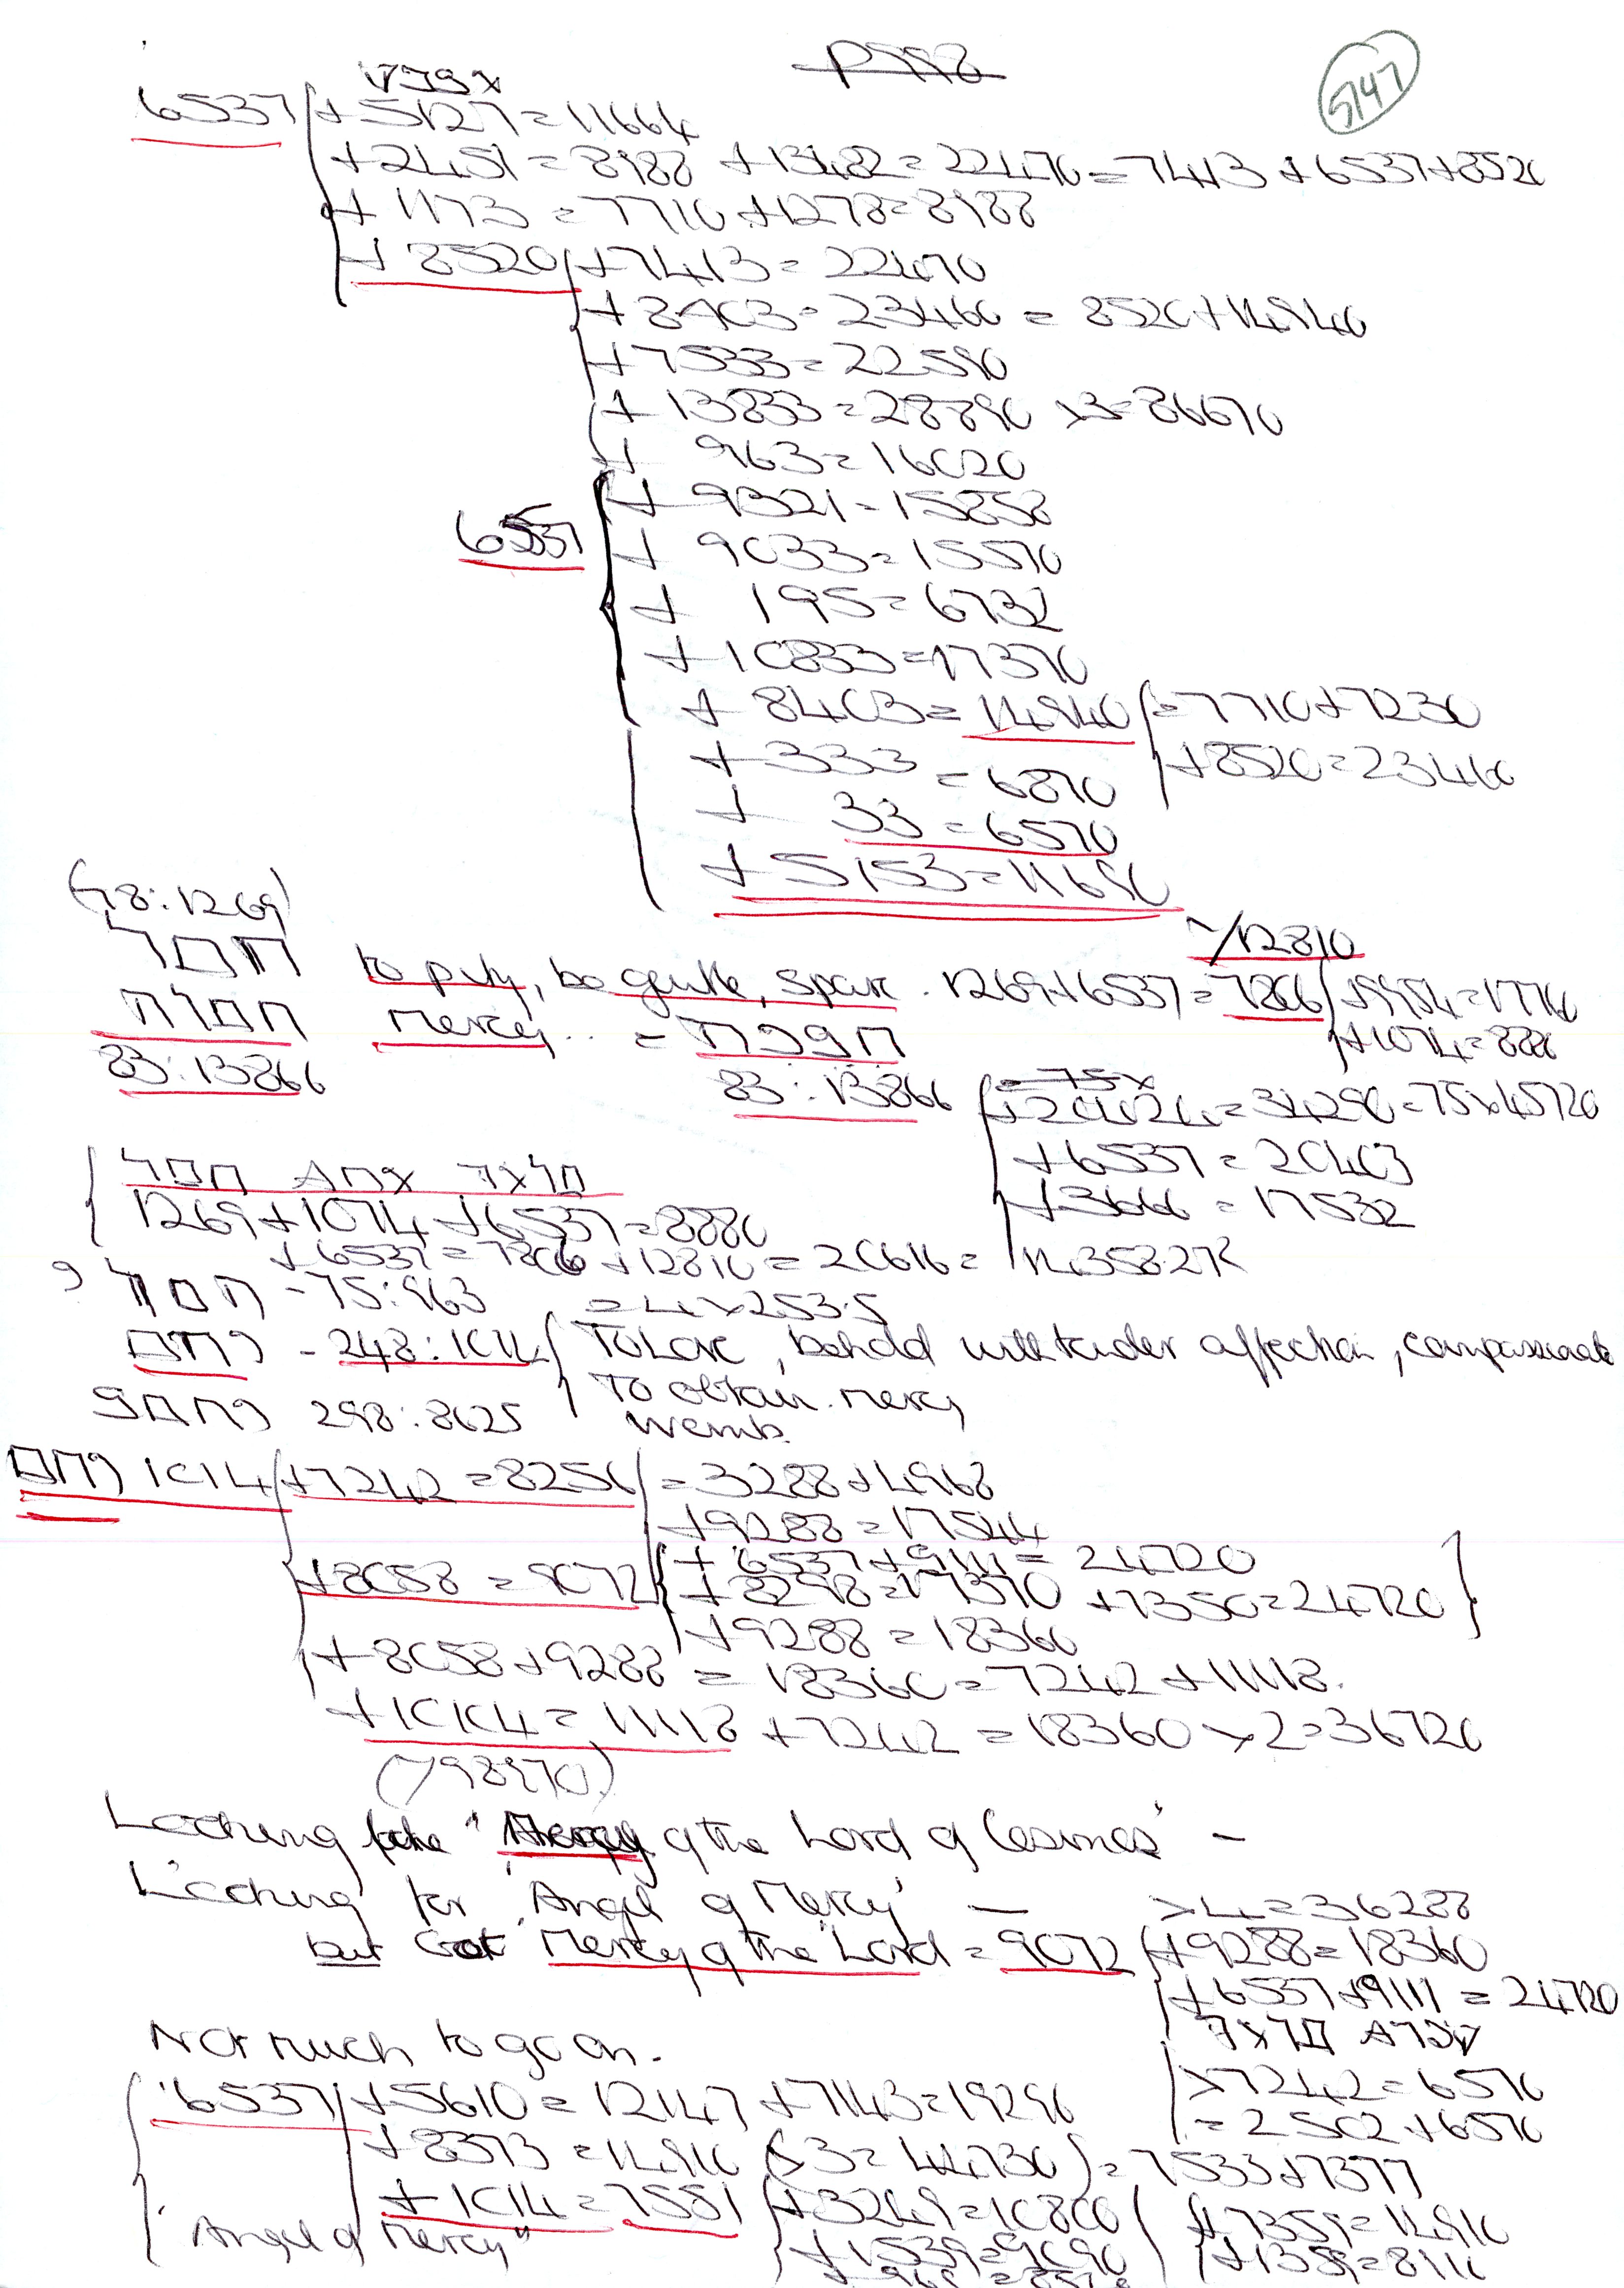 P998
5747
6537 + 5127 = 11664
+ 2451 = 8988 + 13482 = 22470 = 7413 + 6537 + 8520
+ 1173 = 7710 + 1278 = 8988
+ 8520 + 7413 = 22470
+ 8403 = 23460 = 8520 + 14940
+ 7533 = 22590
+ 13833 = 28890 x3 = 86670
+ 963 = 16020
6537 + 9321 = 15858
+ 9033 = 15570
+ 195 = 6732
+ 10833 = 17370
+ 8403 = 14940 = 7710 + 7230
+ 333 = 6870 + 8520 = 23460
+ 33 = 6570
+ 5153 = 11690
(78:1269)
חמל to pity, be gentle, spare. 1269 + 6537 = 7806 + 9954 = 17760
חמלה mercy.. =
+ 1074 = 8880
83:13866 83:13866
= 34290 = 75 x 45720
+ 6537 = 20403
+ 3666 = 17532
1269 + 1074 + 6537 = 8880
+ 6537 = 7806 + 12810 = 20616 = 14358.27²
- 75:963
- 248:1014 To Love, behold with tender affection, compassionate
To obtain mercy
298:8625 womb.
רחם 1014 + 7242 = 8256 = 3288 + 4968
+ 9288 = 17544
+ 6537 + 9111 = 24720
+ 8058 = 9072 + 8298 = 17370 + 7350 = 24720
+ 9288 = 18360
+ 8058 + 9288 = 18360 = 7242 + 11118.
+ 10104 = 11118 + 7242 = 18360 x 2 = 36720
(798970)
Looking for the "Mercy of the Lord of Cosmos" –
Looking for 'Angel of Mercy' –
x 4 = 36288
but Got Mercy of the Lord = 9072 + 9288 = 18360
+ 6537 + 9111 = 24720
Not much to go on.
x 7242 = 6570
6537 + 5610 = 12147 + 7143 = 19290
= 2502 + 6570
+ 8373 = 14910 (x3 = 44730) = 7533 + 7377
+ 1014 = 7551 + 3249 = 10800
+ 7359 = 14910
"Angel of Mercy"
+ 1539 = 9090
+ 1359 = 8910